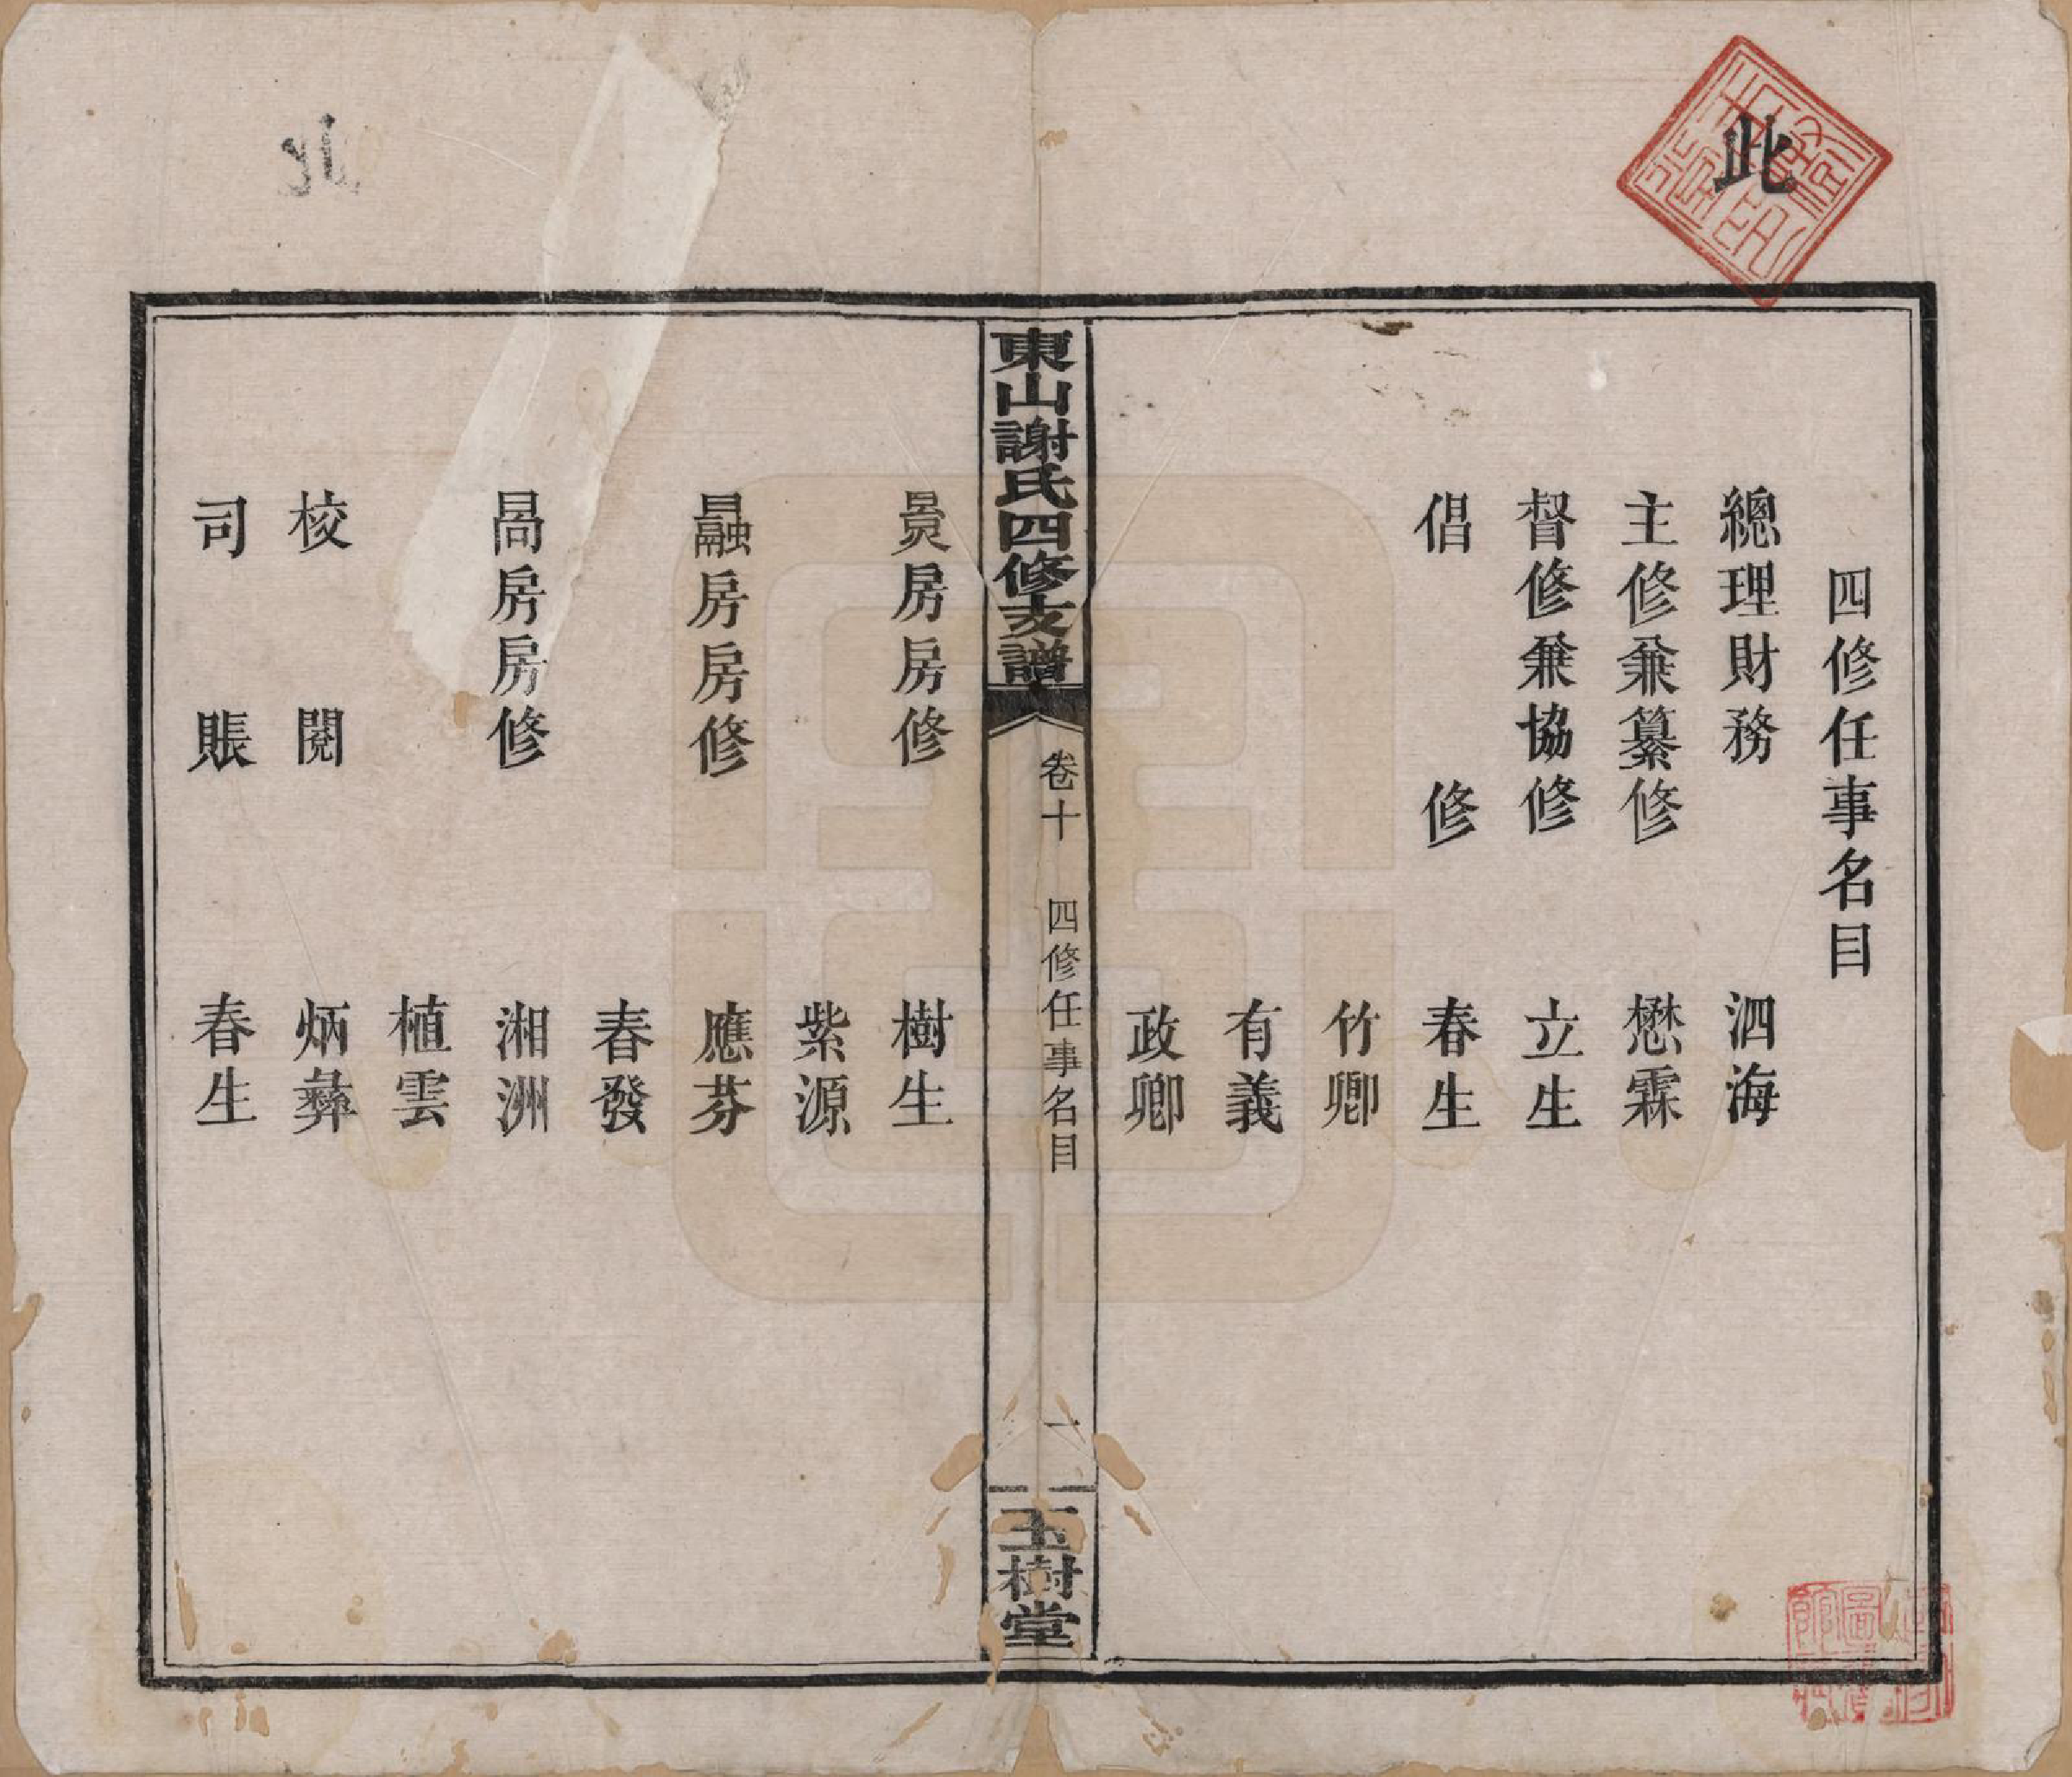 此
四修任事名目
總理財務 泗海
主修兼纂修 懋霖
督修兼協修 立生
倡修 春生
竹卿
有義
政卿
東山謝氏四修支譜
卷十 四修任事名目
一
玉樹堂
房房修 樹生
紫源
房房修 應芬
春發
房房修 湘洲
植雲
校閱 炳彝
司賬 春生